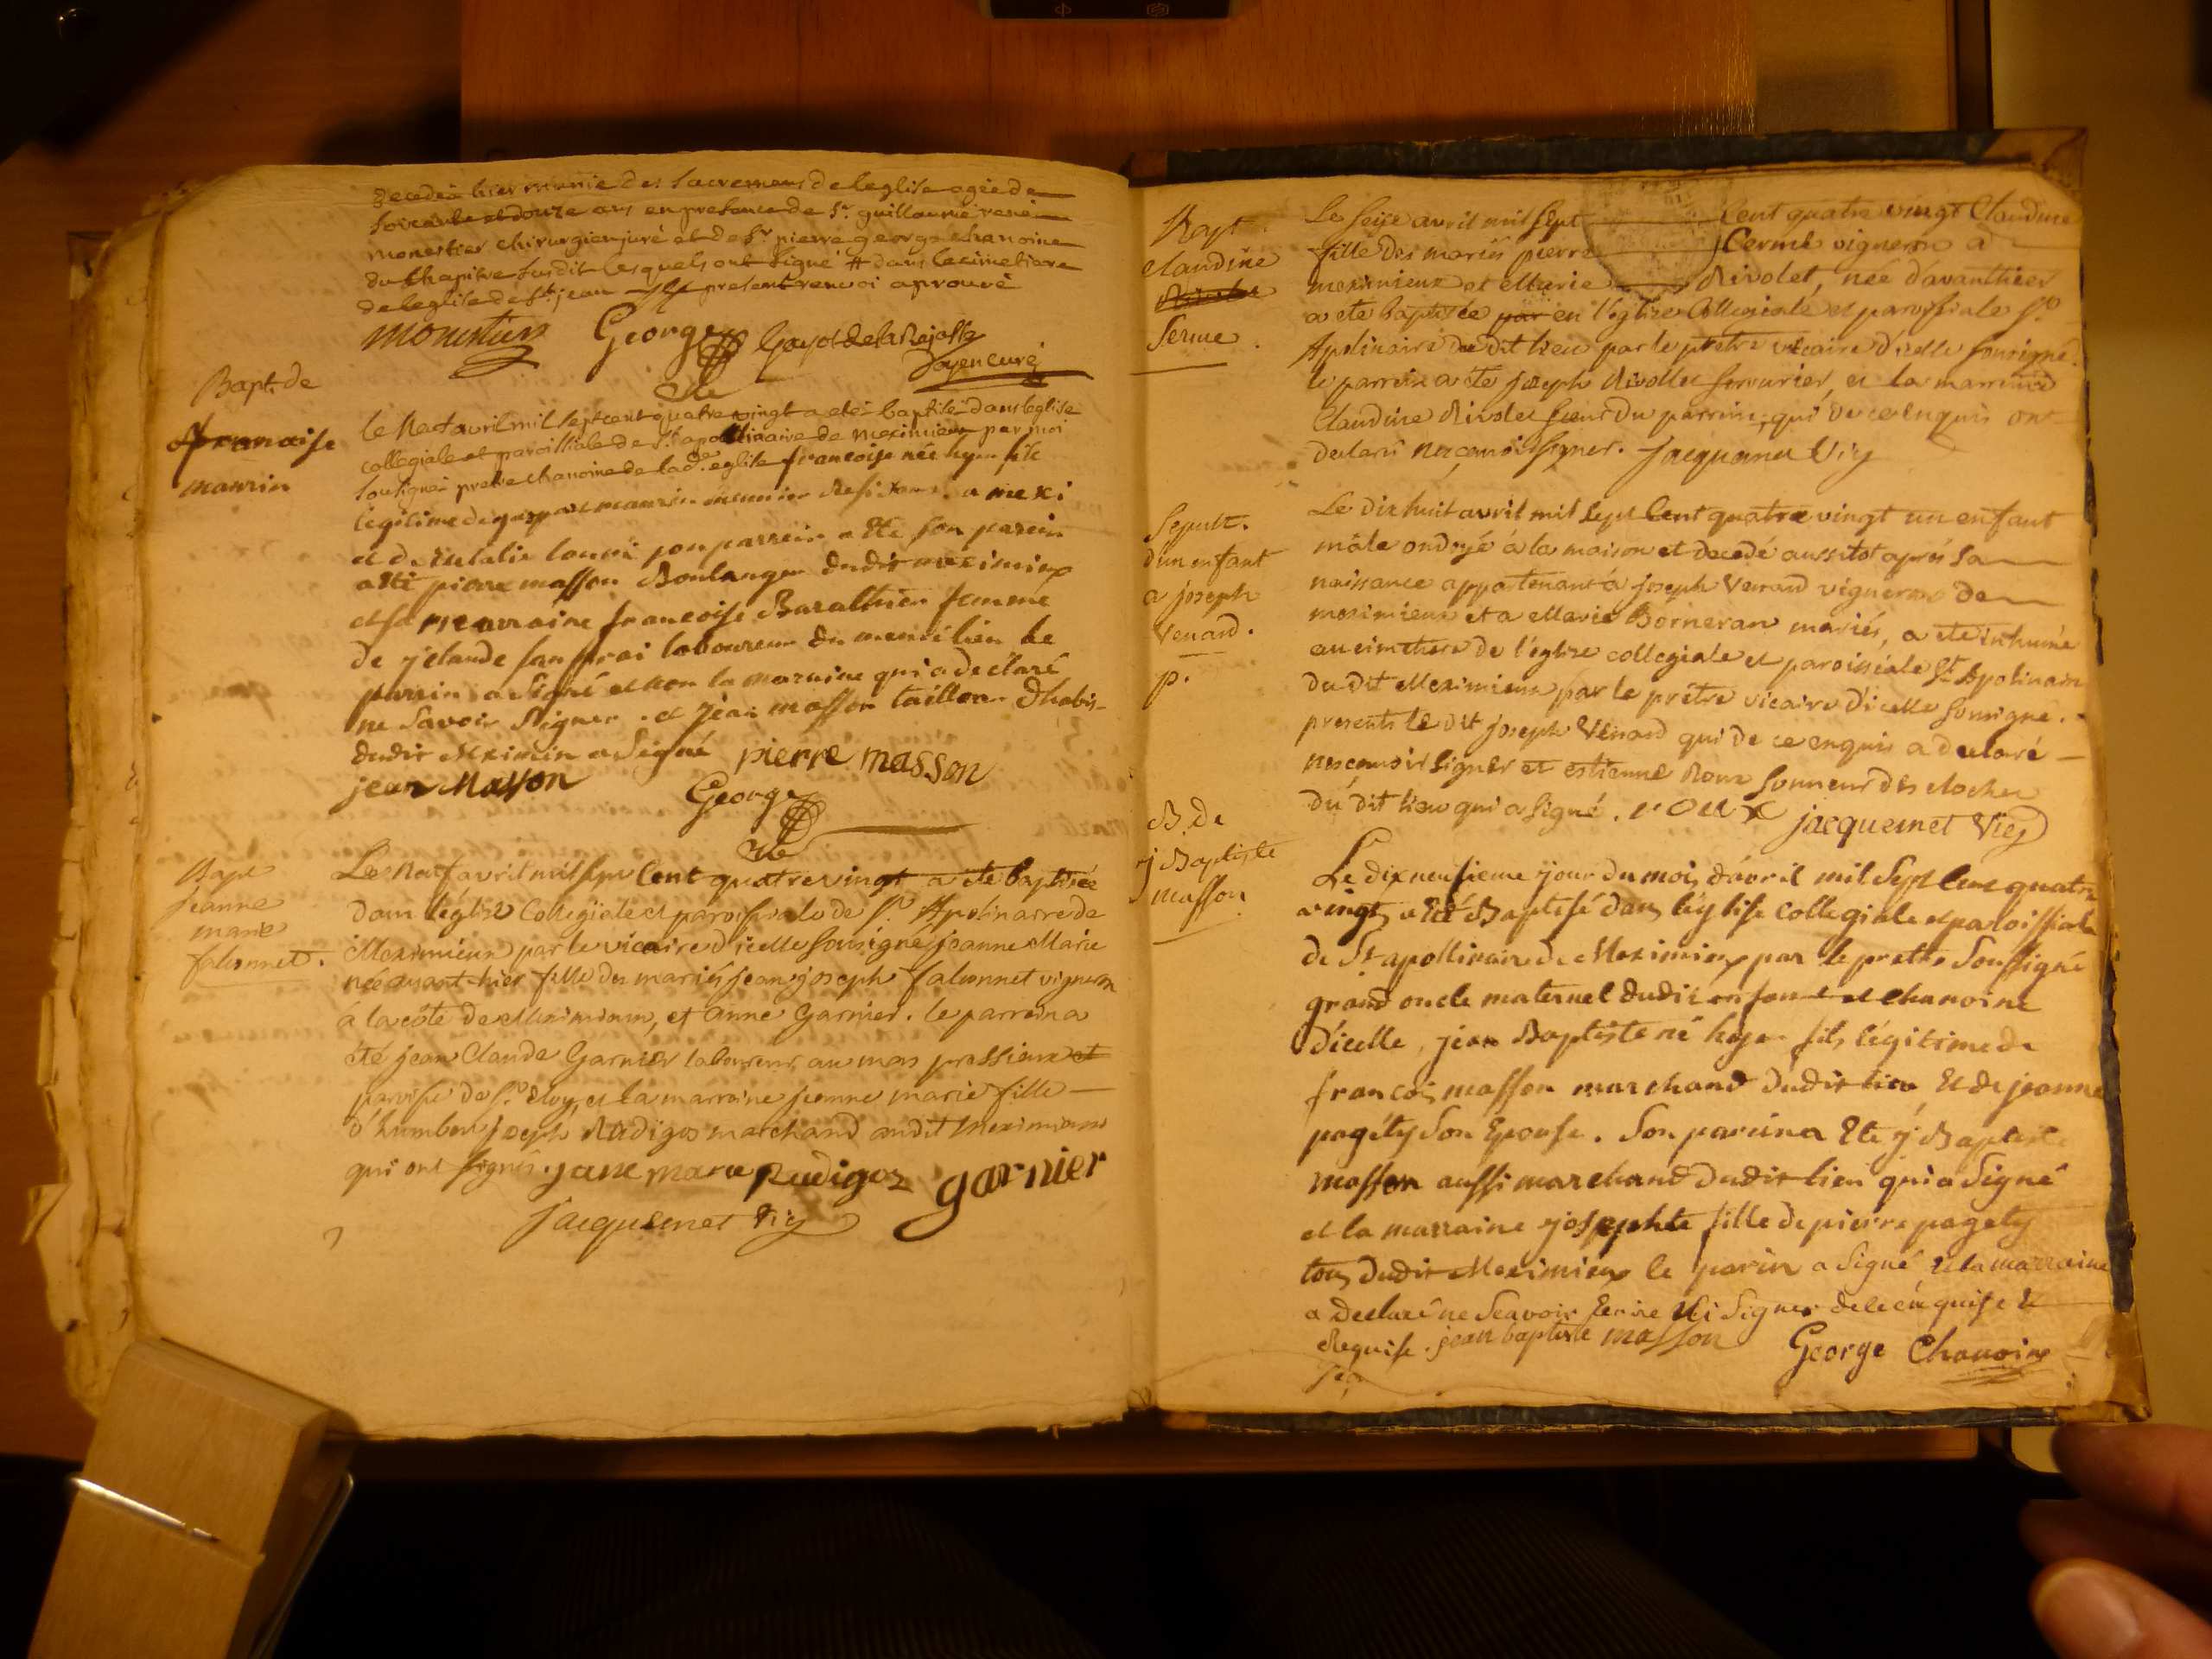 decedée hier munie des sacremens de leglise agée de
soixante et douze ans en presence de Sr guillaume rené
monestier chirurgien juré et de Sr pierre george chanoine
du chapitre susdit lesquels ont signé # dans le cimetiere
de leglise de St jean # present renvoi aprouvé
monestier George Doyen curé
Bapt. de
francoise
maurin
le neuf avril mil sept cent quatre vingt a eté baptisé dans leglise
collegiale et paroissiale de St apollinaire de meximieux par moi
soussigné pretre chanoine de lade. eglise francoise née hyer fille
legitime de gaspard maurin meunier Residant a mexi
et de Eulalie son parrein a Ete son parein
a été pierre masson Boulanger dudit meximieux
et sa marraine francoise Baralthier femme
de laboureur du meme lieu Le
parrin a Signé et non la maraine qui a declaré
ne savoir Signer . et jean masson taillon dhabis-
dudit Meximieu a Signé pierre masson
jean Masson George
Bapt
jeanne
marie
falconnet.
Le Neuf avril mil sept Cent quatre vingt a été baptisée
dans l'église Collegiale et paroissiale de St. Apolinarre de
Meximieux par le vicaire d'icelle soussigné jeanne Marie
née avant-hier fille des mariés jean joseph falconnet vigneron
à la côte de Meximieux, et anne Garnier. le parrein a
été jean Claude Garnier laboureur au mas prassieux et
paroisse de St. eloy, et la marraine jeanne marie fille
d'humbert joseph Rudigoz marchand audit Meximieux
qui ont signés. jane marie Rudigoz garnier
jacquemet Vic
Bapt.
claudine
Serme.
Le seize avril mil sept Cent quatre vingt Claudine
fille des mariés pierre Cermé vigneron a
meximieux et Marie Rivolet, née d'avanthier
a eté baptisée par en l'église Collegiale et paroissiale St.
Apolinaire du dit lieu par le prêtre vicaire d'icelle soussigné.
le parrein a été joseph Rivollet serrurier, et la marreine
Claudine Rivolet soeur du parrein, qui de ce enquis ont
declaré ne sçavoir signer. jacquemet Vic
Sepult.
d'un enfant
a joseph
Venard.
p.
Le dix huit avril mil sept Cent quatre vingt un enfant
mâle ondoyé à la maison et decedé aussitot après sa
naissance appartenant à joseph Venard vigneron de
meximieux et a Marie Borneran mariés, a eté inhumé
au cimetiere de l'église collegiale et paroissiale St Apolinaire
du dit Meximieux par le prêtre vicaire d'icelle soussigné.
presents le dit joseph Venard qui de ce enquis a declaré
ne sçavoir signer et estienne Roux sonneur des cloches
du dit lieu qui a signé. roux jacquemet Vic
B. de
j Baptiste
masson
Le dixneufieme jour du mois d'avril mil Sept Cent quatre
vingt, a Eté Baptisé dans l'église collegiale et paroissiale
de St apollinaire de Meximieux par le pretre Soussigné
grand oncle maternel dudit enfant et chanoine
d'icelle, jean Baptiste né hyer fils légitime de
francois masson marchand dudit lieu Et de jeanne
pagéty Son Epouse. Son parein a Eté j Baptiste
masson aussi marchand dudit lieu qui a Signé
et la marraine josephte fille de pierre pagéty
tous dudit Meximieux le parin a Signé, Et la marraine
a Declaré ne Scavoir Ecrire Ni Signer de ce enquise Et
Requise. jean baptiste masson George Chanoine